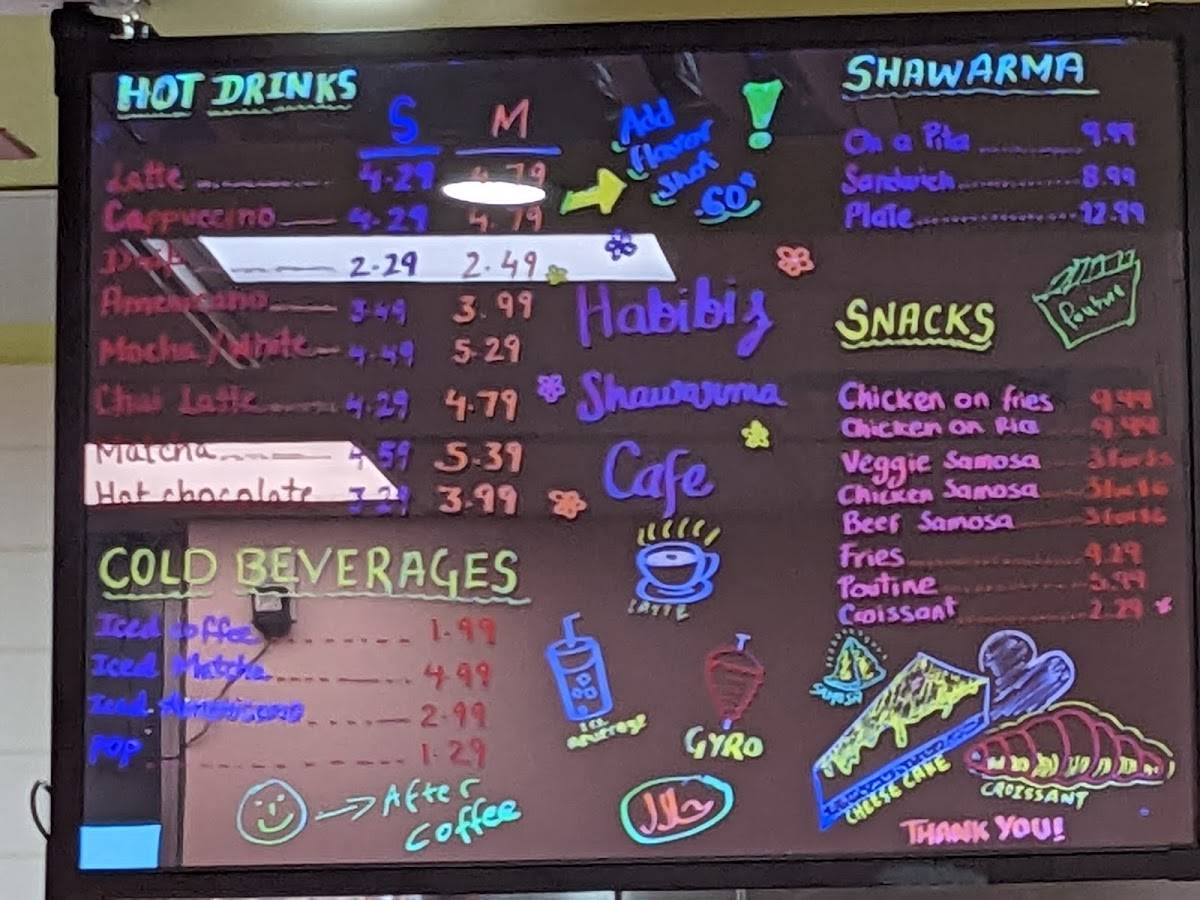 HOT DRINKS
S M
Latte 4.29 4.79
Cappuccino 4.29 4.79
2.29 2.49
Americano 3.49 3.99
Mocha / White 4.49 5.29
Chai Latte 4.29 4.79
Matcha 4.59 5.39
Hot chocolate 3.29 3.99
Add
flavor
shot
.60¢
!
COLD BEVERAGES
Iced coffee 1.99
Iced Matcha 4.99
Iced Americano 2.99
POP 1.29
After
coffee
Habibiz
Shawarma
Cafe
LATTE
ice
GYRO
SHAWARMA
On a Pita 9.99
Sandwich 8.99
Plate 12.99
SNACKS
Poutine
Chicken on fries 9.99
Chicken on Rice 9.99
Veggie Samosa
Chicken Samosa
Beef Samosa
Fries 4.29
Poutine 5.99
Croissant 2.29
CHEESE CAKE
CROISSANT
THANK YOU!